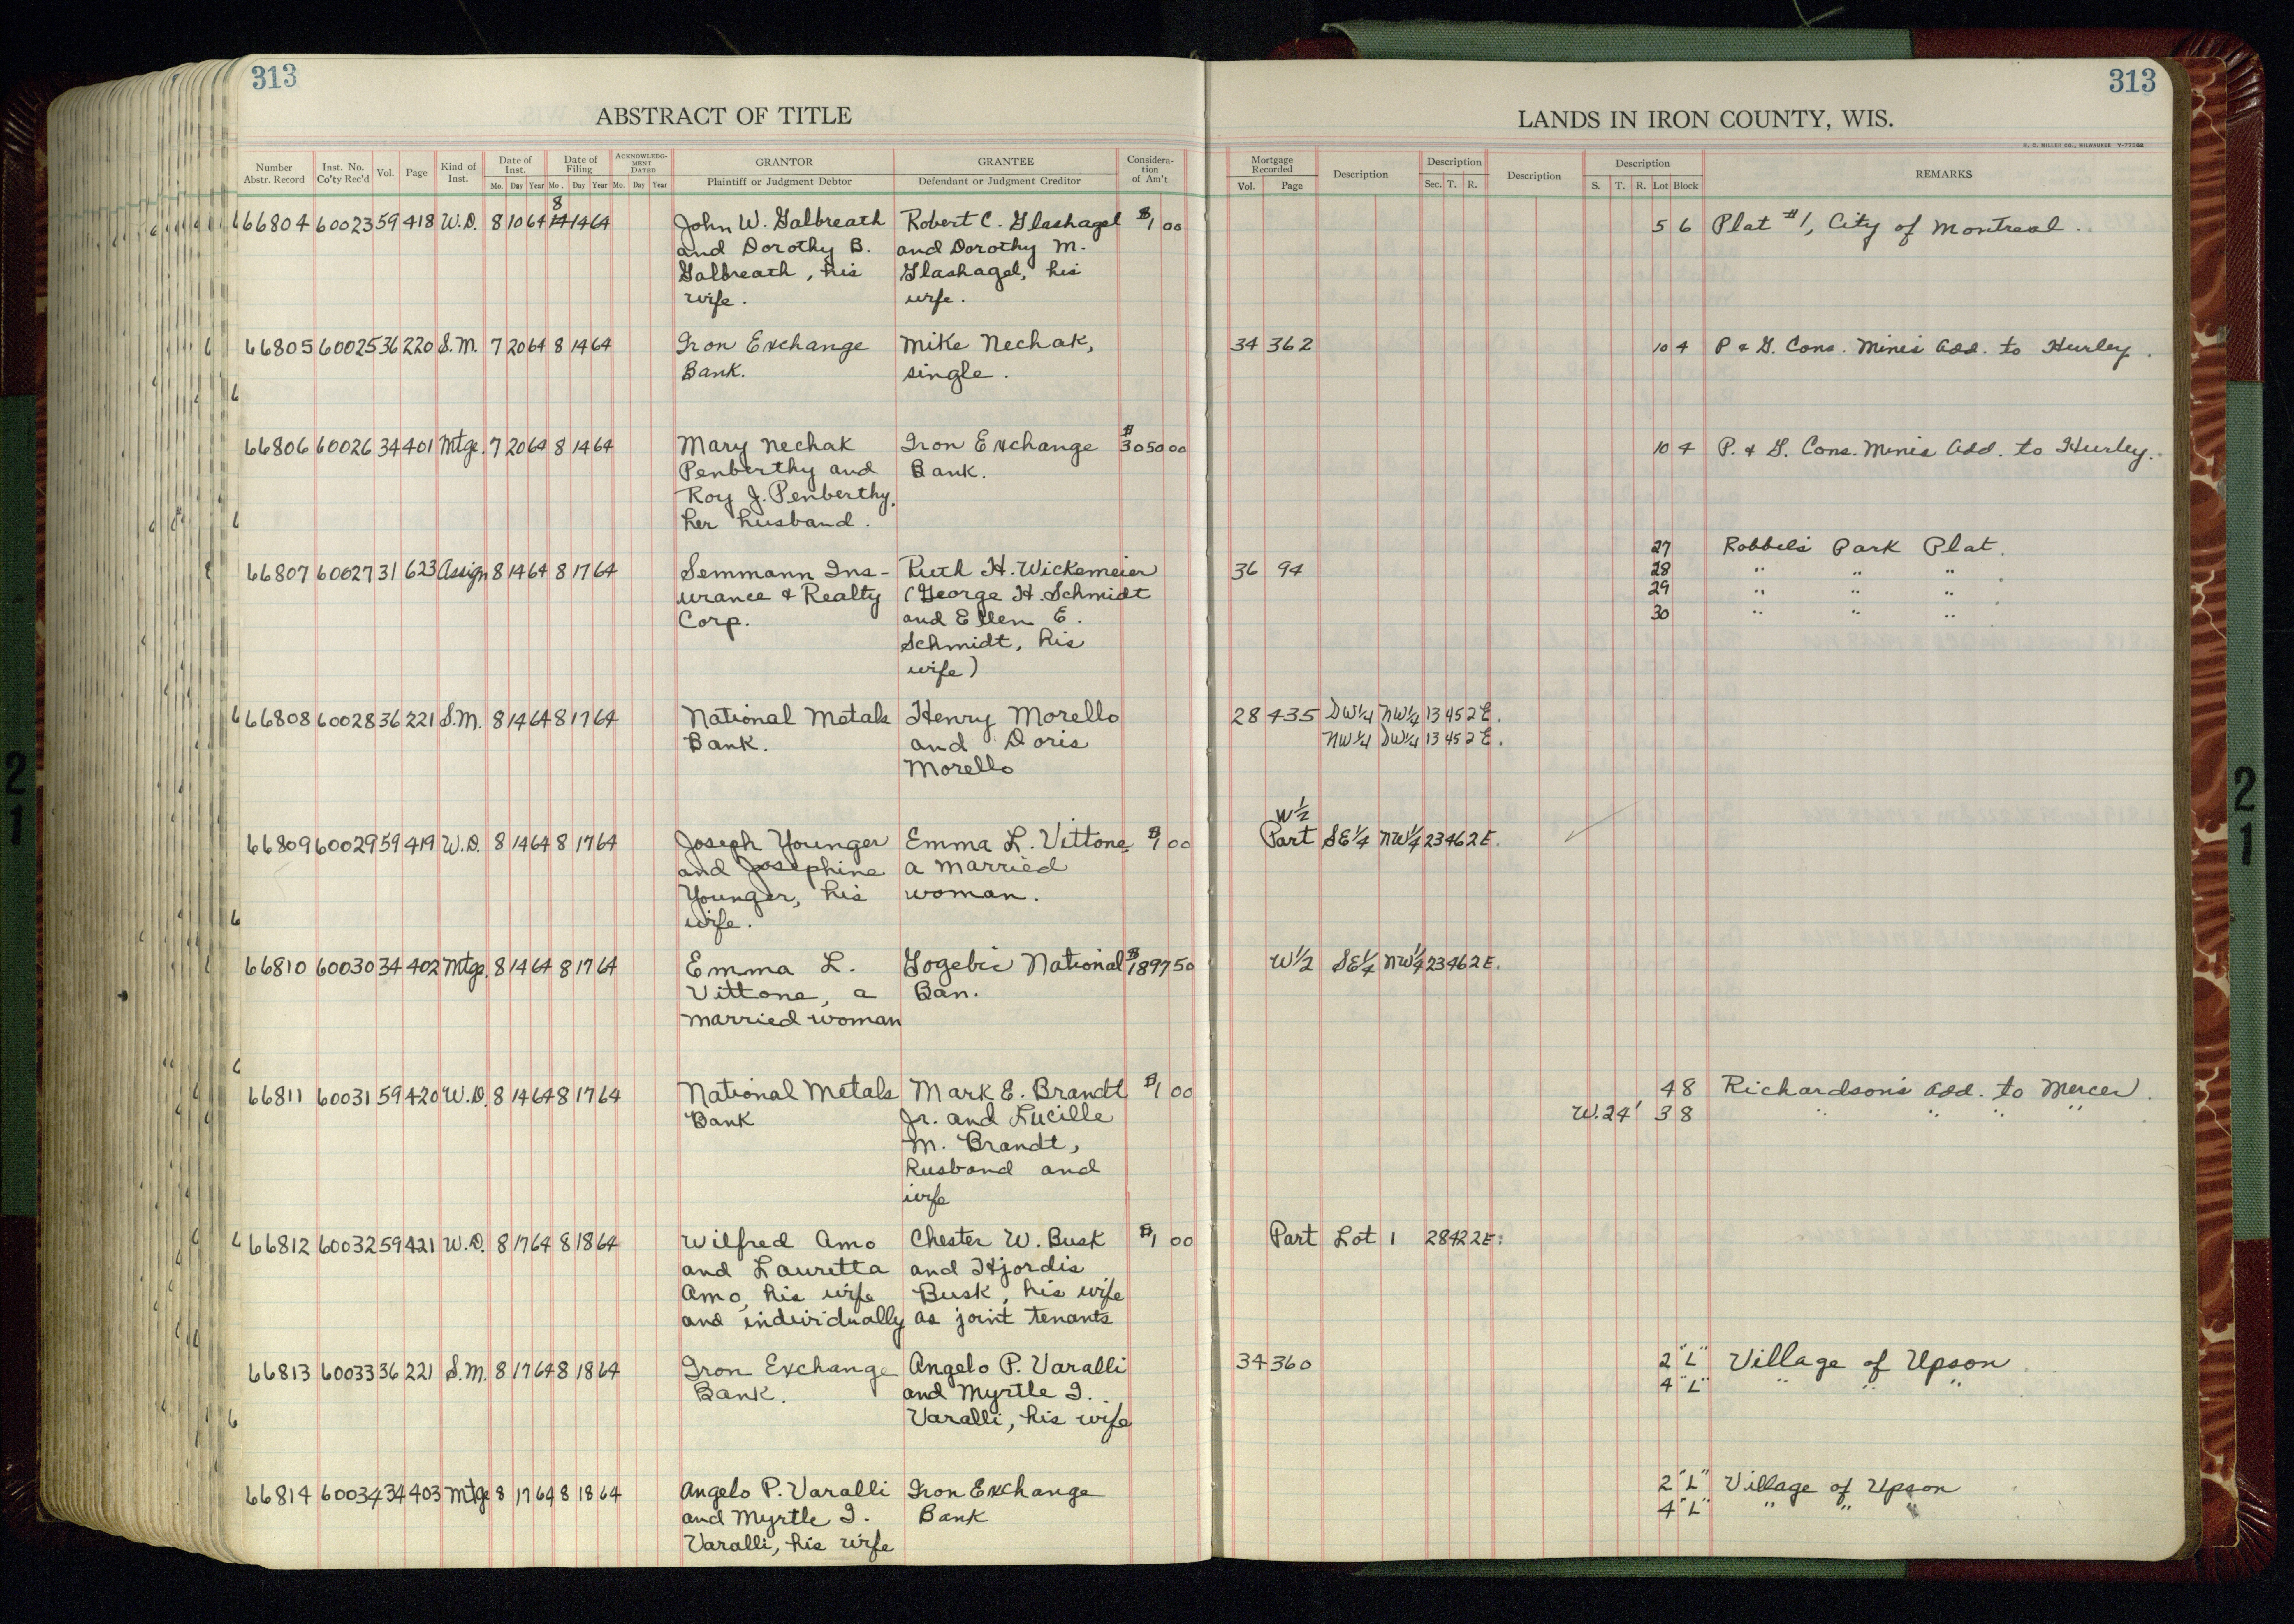 313
ABSTRACT OF TITLE
Number Abstr. Record | Inst. No. Co'ty Rec'd | Vol. | Page | Kind of Inst. | Date of Inst. Mo. Day Year | Date of Filing Mo. Day Year | ACKNOWLEDGMENT DATED Mo. Day Year | GRANTOR Plaintiff or Judgment Debtor | GRANTEE Defendant or Judgment Creditor | Consideration of Am't
8
66804 60023 59 418 W.D. 8 10 64 14 14 64 John W. Galbreath Robert C. Glashagel $1 00
and Dorothy B. and Dorothy M.
Galbreath, his Glashagel, his
wife. wife.
66805 60025 36 220 S.M. 7 20 64 8 14 64 Iron Exchange Mike Nechak,
Bank. single.
66806 60026 34 401 Mtge. 7 20 64 8 14 64 Mary Nechak Iron Exchange $3050 00
Penberthy and Bank.
Roy J. Penberthy,
her husband.
66807 60027 31 623 Assign 8 14 64 8 17 64 Semmann Ins- Ruth H. Wickemeier
urance & Realty (George H. Schmidt
Corp. and Ellen E.
Schmidt, his
wife)
66808 60028 36 221 S.M. 8 14 64 8 17 64 National Metals Henry Morello
Bank. and Doris
Morello
66809 60029 59 419 W.D. 8 14 64 8 17 64 Joseph Younger Emma L. Vittone $1 00
and Josephine a married
Younger, his woman.
wife.
66810 60030 34 402 Mtge. 8 14 64 8 17 64 Emma L. Gogebic National $1897 50
Vittone, a Ban.
married woman
66811 60031 59 420 W.D. 8 14 64 8 17 64 National Metals Mark E. Brandt $1 00
Bank Jr. and Lucille
M. Brandt,
husband and
wife
66812 60032 59 421 W.D. 8 17 64 8 18 64 Wilfred Amo Chester W. Busk $1 00
and Lauretta and Hjordis
Amo, his wife Busk, his wife
and individually as joint tenants
66813 60033 36 221 S.M. 8 17 64 8 18 64 Iron Exchange Angelo P. Varalli
Bank. and Myrtle I.
Varalli, his wife
66814 60034 34 403 Mtge 8 17 64 8 18 64 Angelo P. Varalli Iron Exchange
and Myrtle I. Bank
Varalli, his wife
313
LANDS IN IRON COUNTY, WIS.
H. C. MILLER CO., MILWAUKEE
Mortgage Recorded Vol. Page | Description | Description Sec. T. R. | Description | Description S. T. R. Lot Block | REMARKS
5 6 Plat #1, City of Montreal.
34 362 10 4 P & G. Cons. Mines Add. to Hurley.
10 4 P. & G. Cons. Mines Add. to Hurley.
27 Robbels Park Plat.
36 94 28 " " "
29 " " "
30 " " "
28 435 SW1/4 NW1/4 13 45 2E.
NW1/4 SW1/4 13 45 2E.
W1/2
Part SE1/4 NW1/4 23 46 2E.
W1/2 SE1/4 NW1/4 23 46 2E.
4 8 Richardson's Add. to Mercer.
W.24' 3 8 " " " "
Part Lot 1 28 42 2E.
34 360 2 "L" Village of Upson
4 "L" " " "
2 "L" Village of Upson
4 "L" " " "
21
21